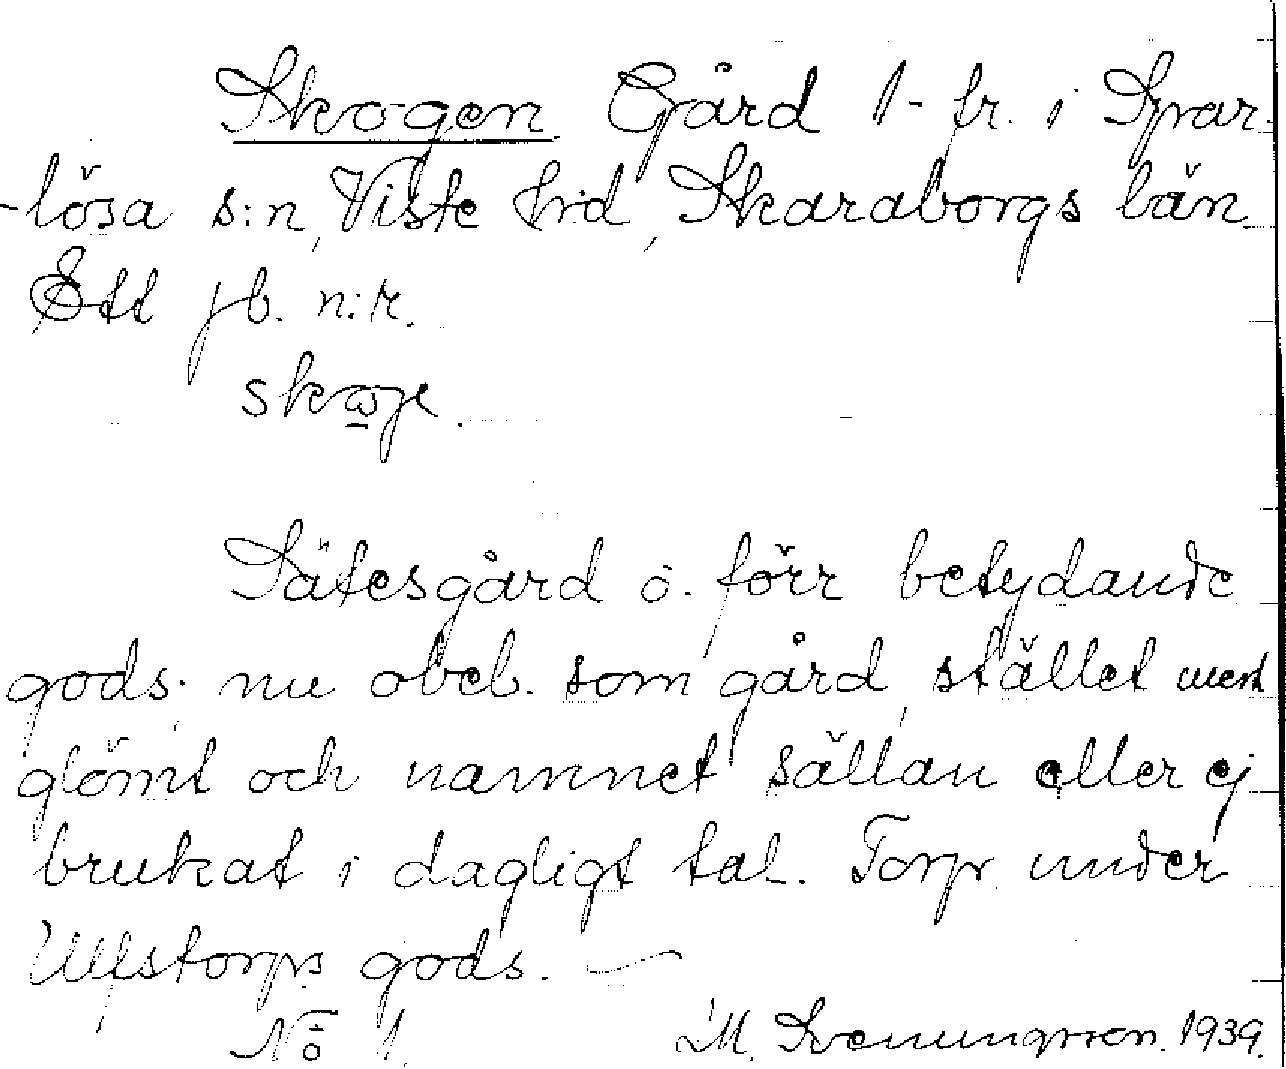 Skogen Gård 1 fr. i Spar-
-lösa s:n, Viste hrd, Skaraborgs län
Ett jb. n:r.
skωje.
Sätesgård o. förr betydande
gods; nu obeb. som gård, stället mest
glömt och namnet sällan eller ej
brukat i dagligt tal. Torp under
Ulfstorps gods. —
No 1. M. Svenungsson. 1939.